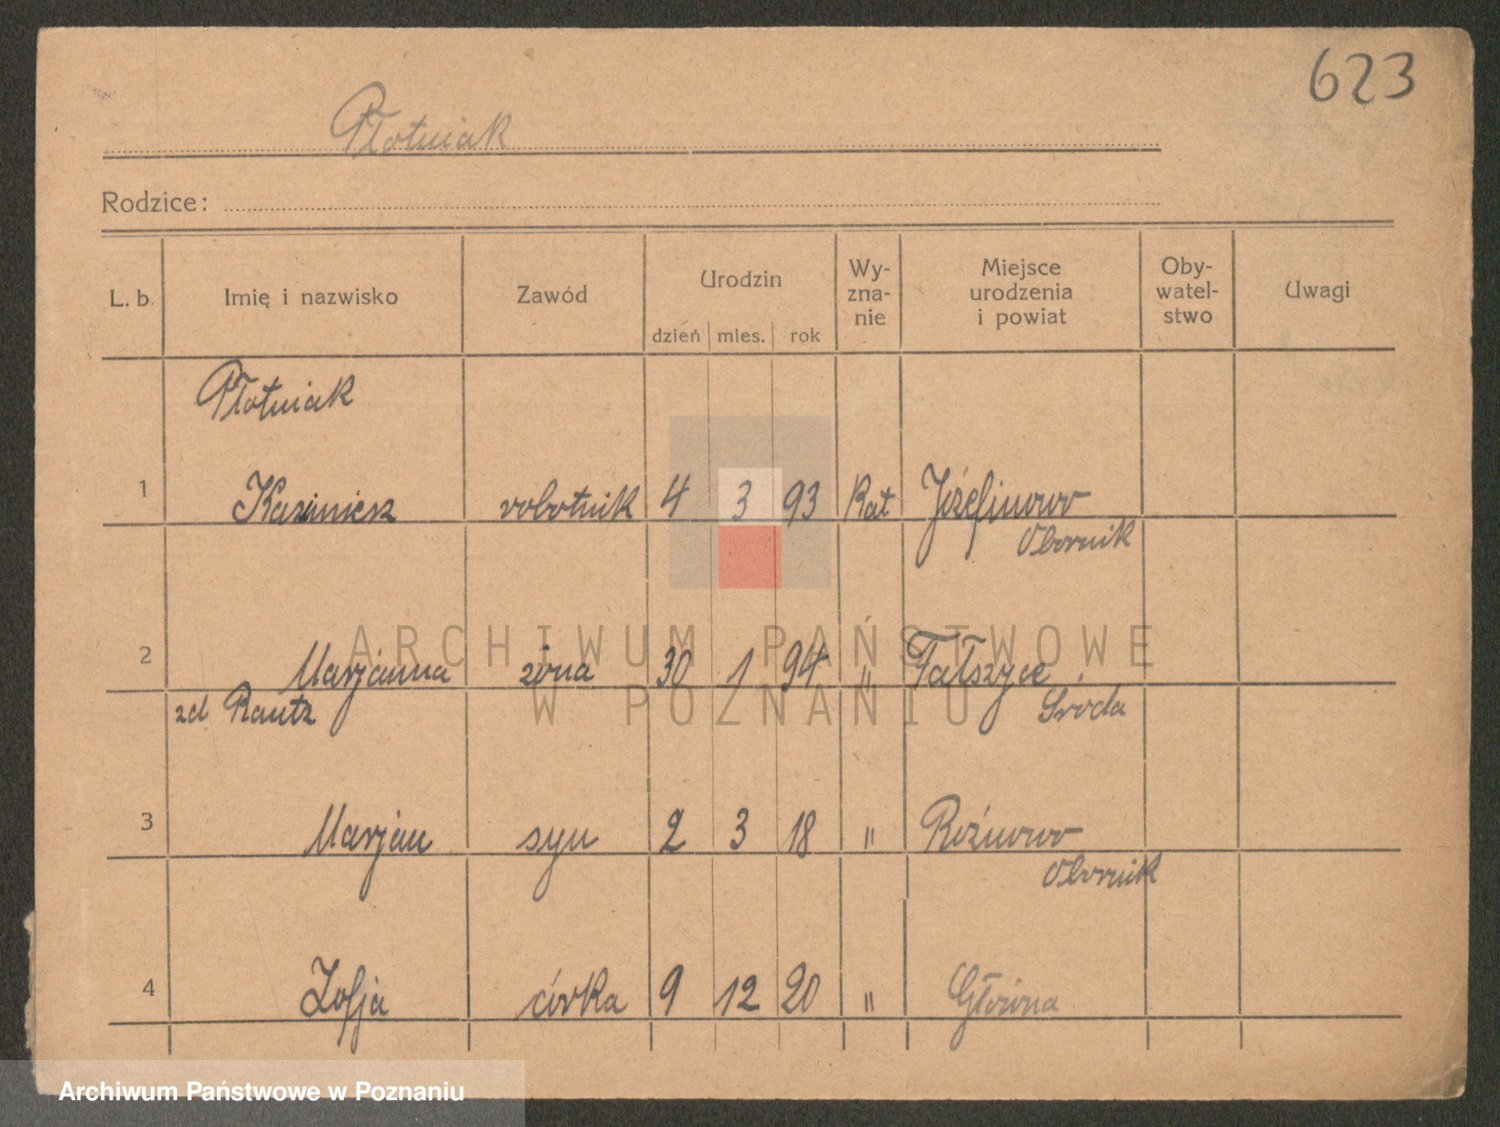 623
Płotniak
Rodzice:
L. b. Imię i nazwisko Zawód Urodzin dzień mies. rok Wy-zna-nie Miejsce urodzenia i powiat Oby-watel-stwo Uwagi
Płotniak
1 Kazimierz robotnik 4 3 93 Kat Józefinowo
Obornik
ARCHIWUM PAŃSTWOWE
2 Marjanna żona 30 1 94 " Tałszyce
W POZNANIU
zd Rautz Środa
3 Marjan syn 2 3 18 " Rożnowo
Obornik
4 Zofja córka 9 12 20 " Główna
Archiwum Państwowe w Poznaniu